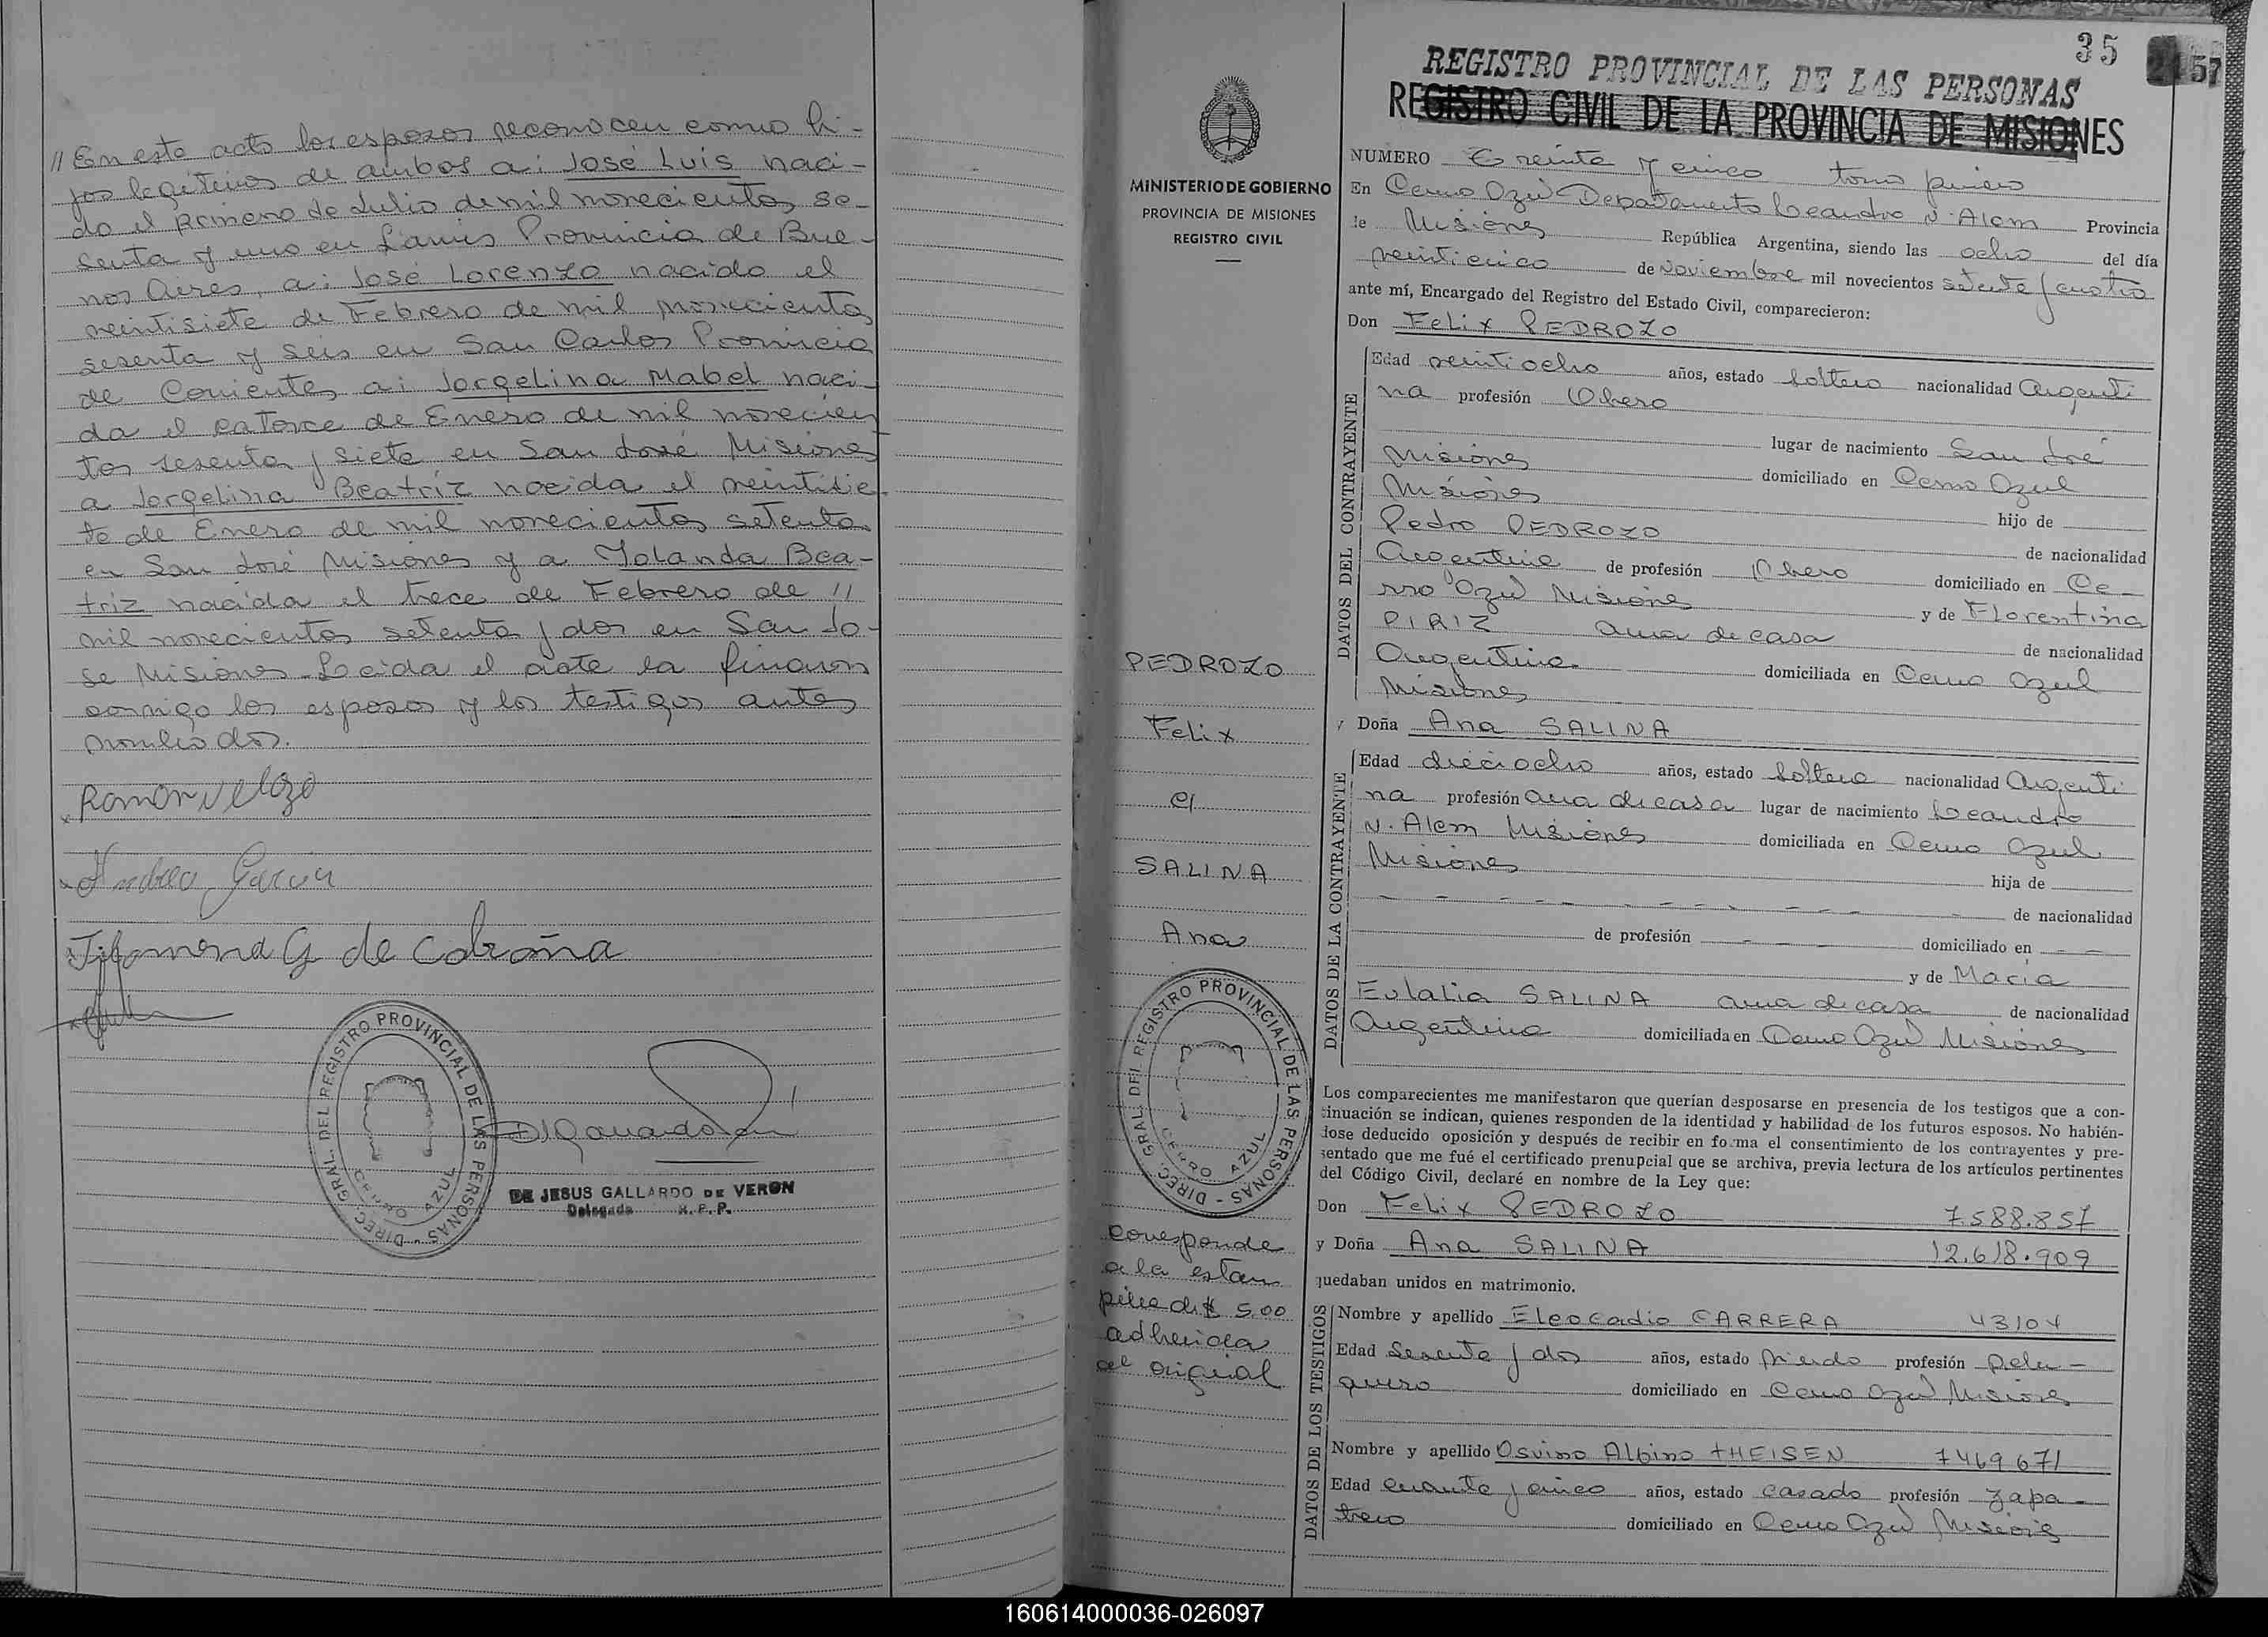 // En este acto los esposos reconocen como hi-
jos legítimos de ambos a: José Luis naci-
do el primero de Julio de mil novecientos se-
senta y uno en Lanús Provincia de Bue-
nos Aires, a: José Lorenzo nacido el
veintisiete de Febrero de mil novecientos
sesenta y seis en San Carlos Provincia
de Corrientes a: Jorgelina Mabel naci-
da el catorce de Enero de mil novecien
tos sesenta y siete en San José Misiones
a Jorgelina Beatriz nacida el veintisie-
te de Enero de mil novecientos setenta
en San José Misiones y a Yolanda Bea-
triz nacida el trece de Febrero de //
mil novecientos setenta y dos en San Jo-
se Misiones. Leida el acta la firmaron
conmigo los esposos y los testigos antes
nombrados.
Ramon Velozo
Garcia
Filomena G de Cabraña
DIREC. GRAL. DEL REGISTRO PROVINCIAL DE LAS PERSONAS
CERRO AZUL
DE JESUS GALLARDO DE VERON
Delegada R. P. P.
35
57
REGISTRO PROVINCIAL DE LAS PERSONAS
REGISTRO CIVIL DE LA PROVINCIA DE MISIONES
MINISTERIO DE GOBIERNO
PROVINCIA DE MISIONES
REGISTRO CIVIL
NUMERO Treinta y cinco tomo primero
En Cerro Azul - Departamento Leandro N. Alem Provincia
de Misiones República Argentina, siendo las ocho del día
veinticinco de Noviembre mil novecientos setenta y cuatro
ante mí, Encargado del Registro del Estado Civil, comparecieron:
Don Felix PEDROZO
DATOS DEL CONTRAYENTE
Edad veintiocho años, estado soltero nacionalidad Argenti
na profesión Obrero
lugar de nacimiento San José
Misiones domiciliado en Cerro Azul
Misiones hijo de
Pedro PEDROZO de nacionalidad
Argentina de profesión Obrero domiciliado en Ce-
rro Azul Misiones y de Florentina
PIRIZ ama de casa de nacionalidad
Argentina domiciliada en Cerro Azul
Misiones
y Doña Ana SALINA
DATOS DE LA CONTRAYENTE
Edad dieciocho años, estado soltera nacionalidad Argenti
na profesión ama de casa lugar de nacimiento Leandro
N. Alem Misiones domiciliada en Cerro Azul
Misiones hija de
- - - - - - - - - - de nacionalidad
de profesión - - - domiciliado en - -
y de María
Eulalia SALINA ama de casa de nacionalidad
Argentina domiciliada en Cerro Azul Misiones
Los comparecientes me manifestaron que querían desposarse en presencia de los testigos que a con-
tinuación se indican, quienes responden de la identidad y habilidad de los futuros esposos. No habién-
dose deducido oposición y después de recibir en forma el consentimiento de los contrayentes y pre-
sentado que me fué el certificado prenupcial que se archiva, previa lectura de los artículos pertinentes
del Código Civil, declaré en nombre de la Ley que:
Don Felix PEDROZO 7.588.857
y Doña Ana SALINA 12.618.909
quedaban unidos en matrimonio.
DATOS DE LOS TESTIGOS
Nombre y apellido Eleocadio CARRERA 43104
Edad sesenta y dos años, estado viudo profesión pelu-
quero domiciliado en Cerro Azul Misiones
Nombre y apellido Osvino Albino THEISEN 7469671
Edad cuarenta y cinco años, estado casado profesión zapa-
tero domiciliado en Cerro Azul Misiones
PEDROZO
Felix
c/
SALINA
Ana
DIREC. GRAL. DEL REGISTRO PROVINCIAL DE LAS PERSONAS
CERRO AZUL
corresponde
a la estam
pilla de $ 5.00
adherida
al original
160614000036-026097